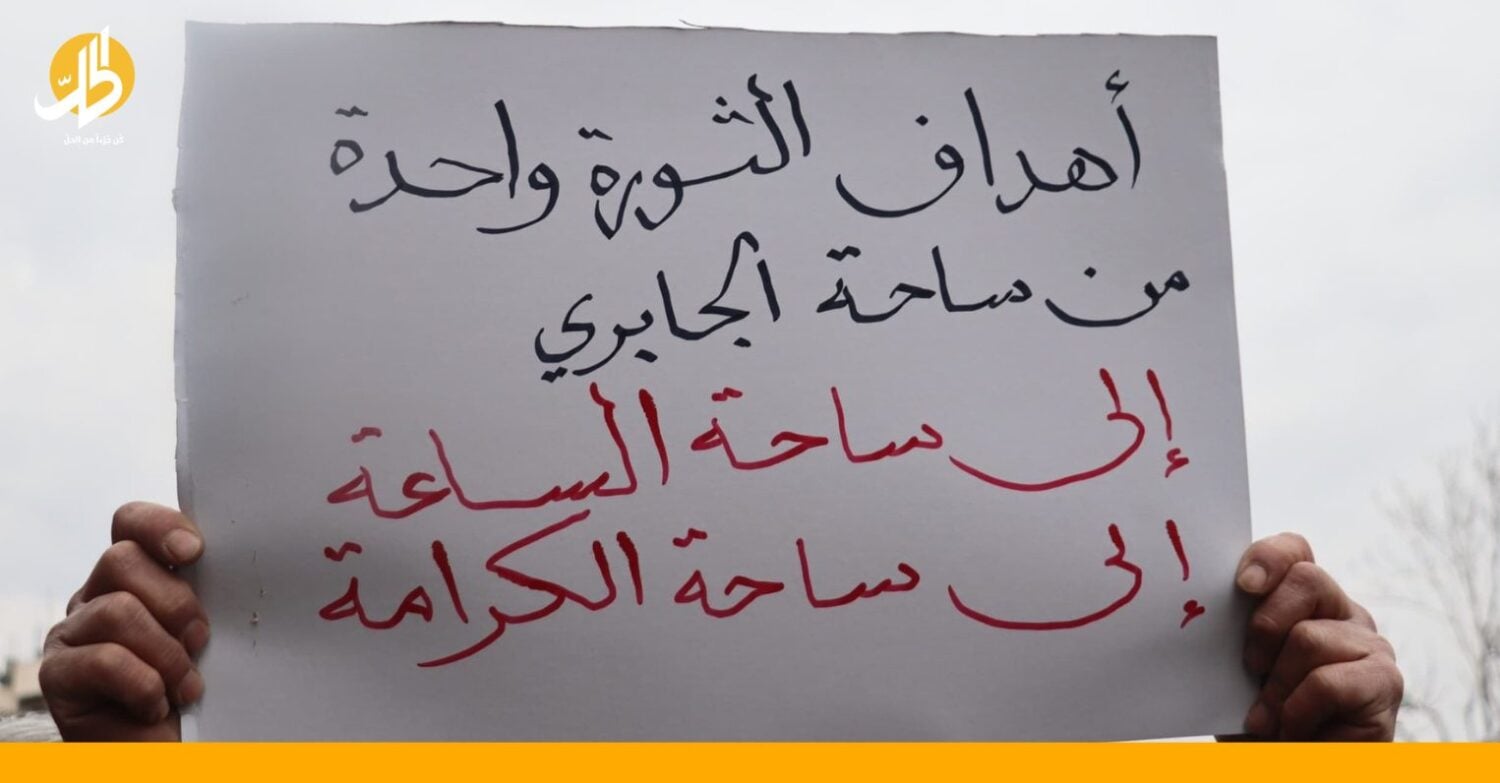 الحل
كن جزءاً من الحل
أهداف الثورة واحدة
من ساحة الجابري
إلى ساحة الساعة
إلى ساحة الكرامة